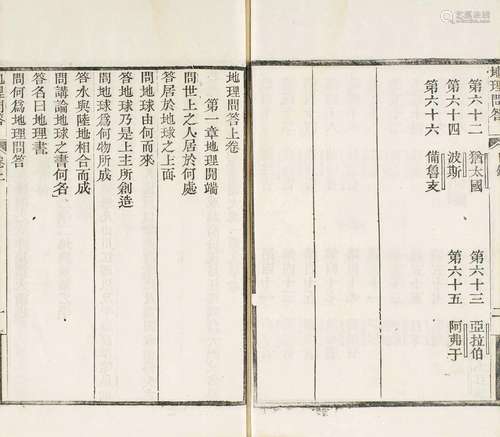 地理問答
第六十二 猶太國 第六十三 亞拉伯
第六十四 波斯 第六十五 阿弗干
第六十六 備魯支
地理問答上卷
第一章地理開端
問世上之人居於何處
答居於地球之上面
問地球由何而來
答地球乃是上主所創造
問地球為何物所成
答水與陸地相合而成
問講論地球之書何名
答名曰地理書
問何爲地理問答
地理問答